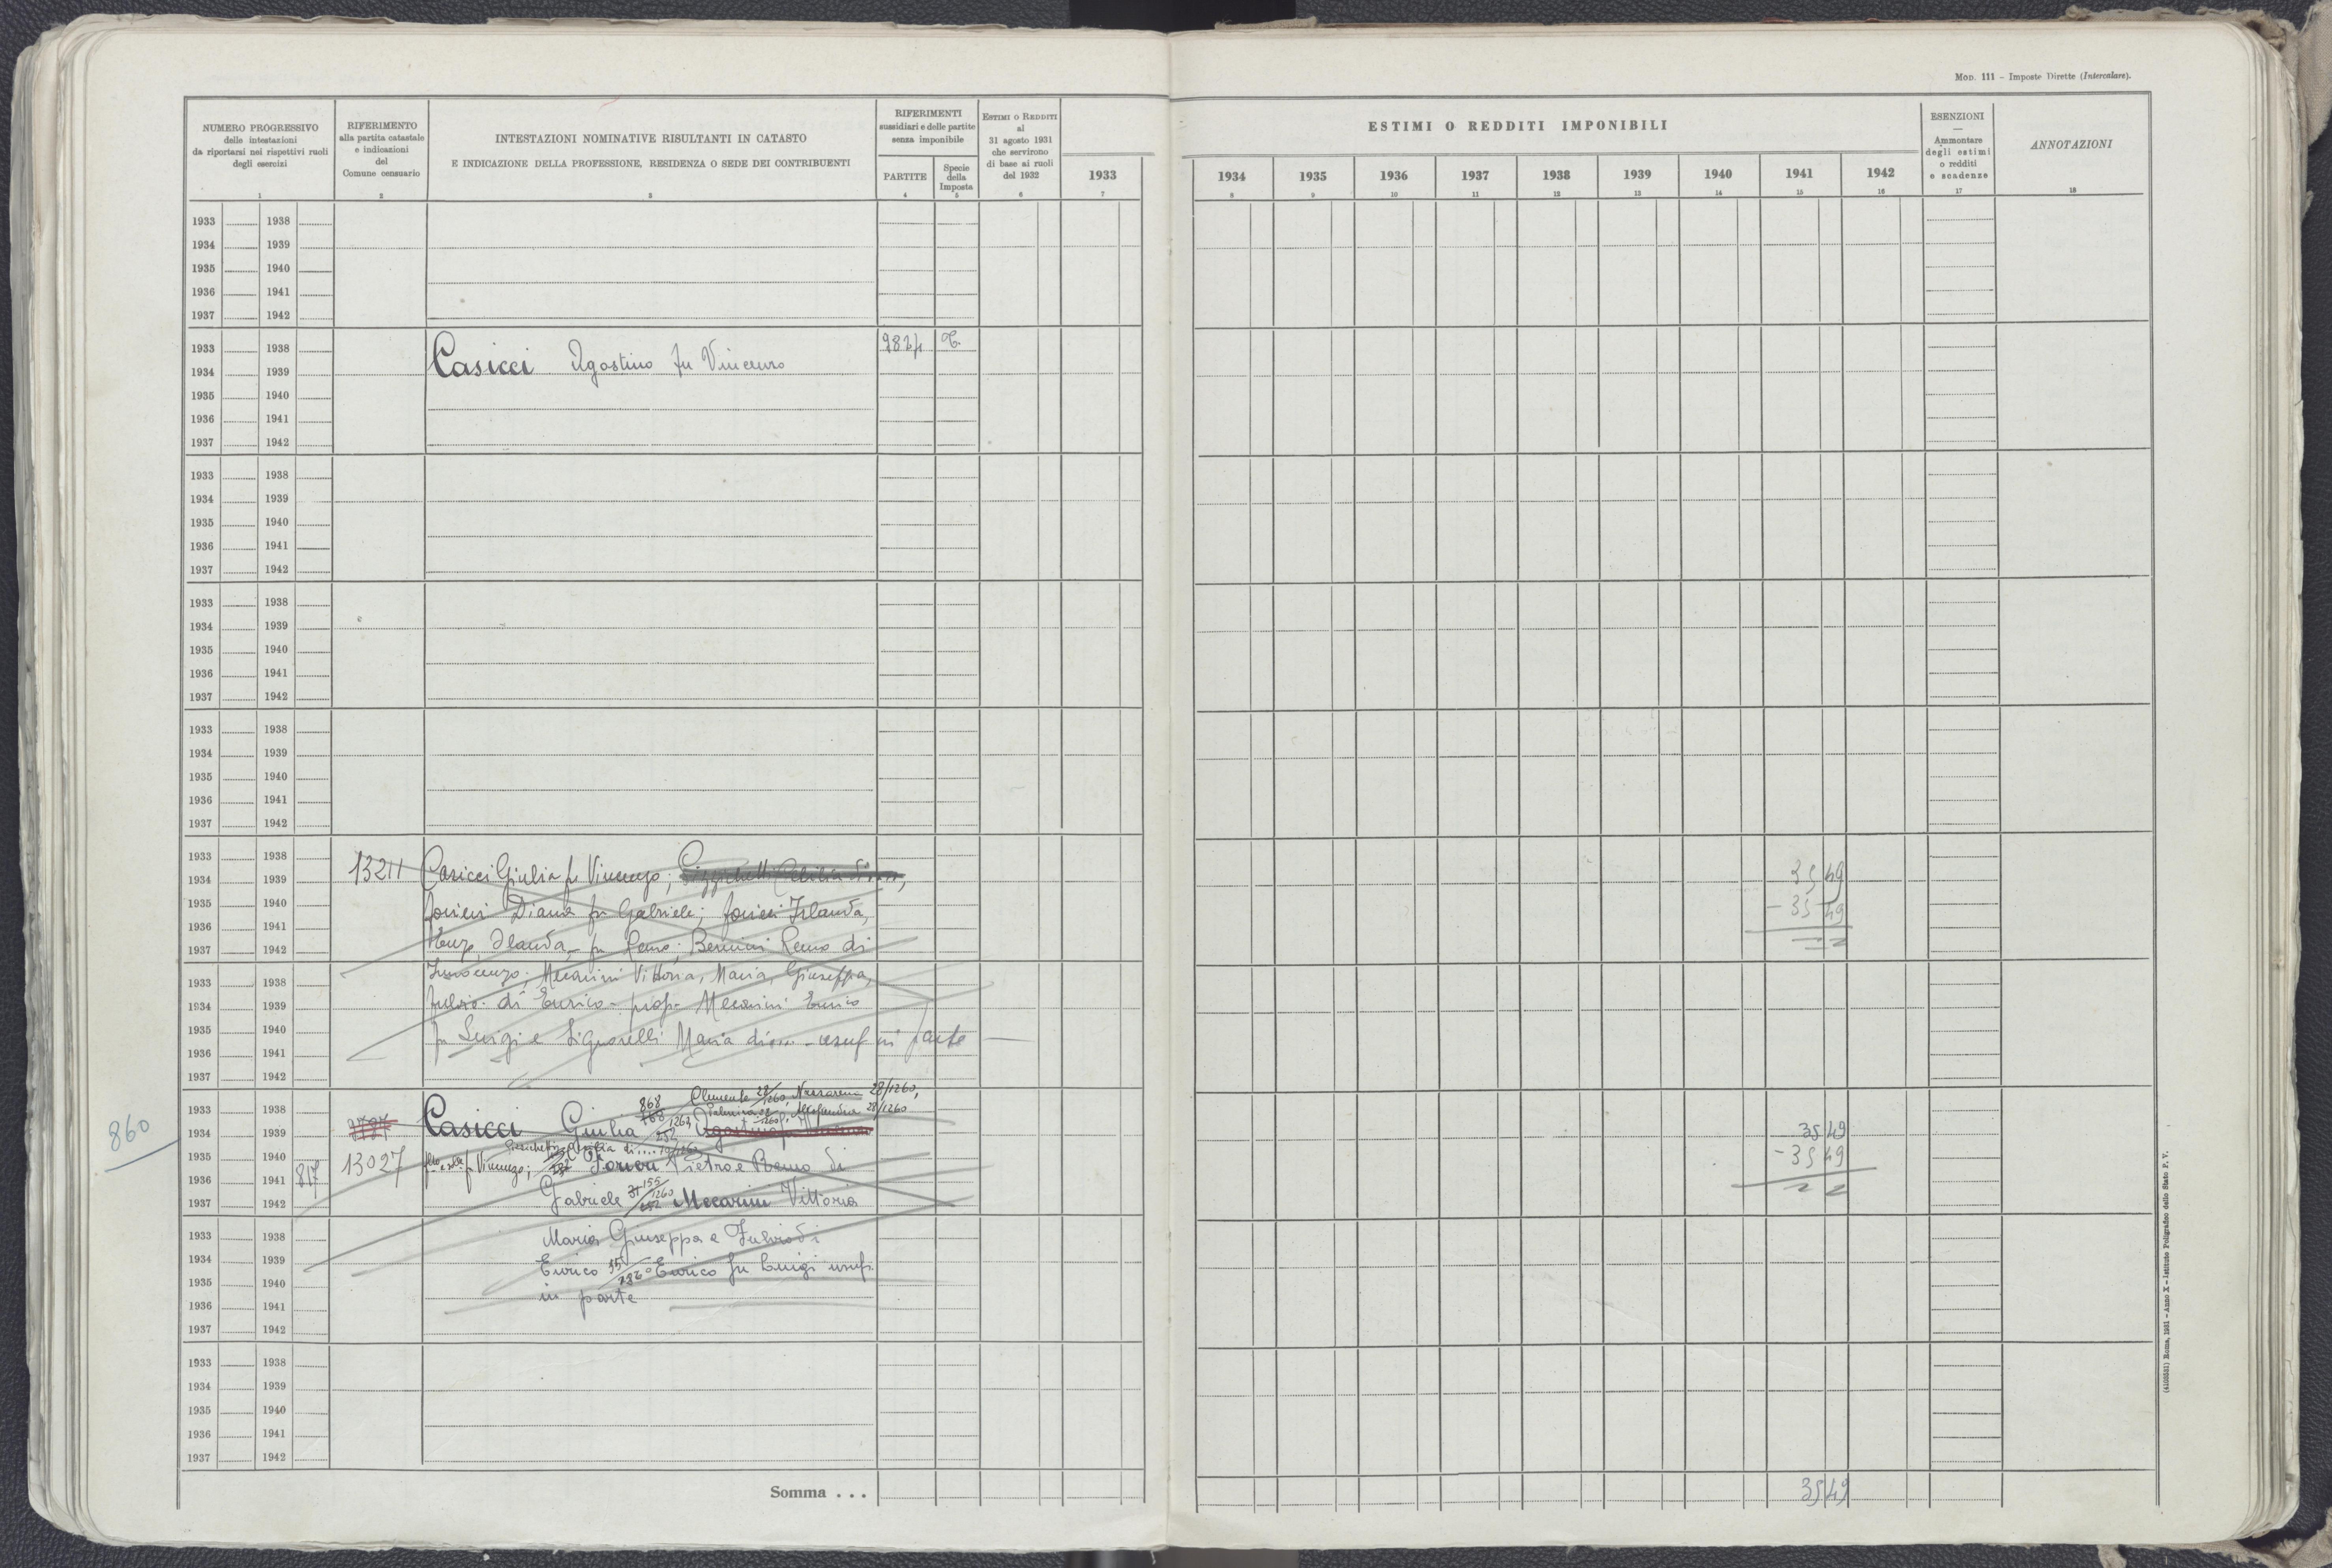 Mod. 111 - Imposte Dirette (Intercalare).
NUMERO PROGRESSIVO
delle intestazioni
da riportarsi nei rispettivi ruoli
degli esercizi
1
RIFERIMENTO
alla partita catastale
e indicazioni
del
Comune censuario
2
INTESTAZIONI NOMINATIVE RISULTANTI IN CATASTO
E INDICAZIONE DELLA PROFESSIONE, RESIDENZA O SEDE DEI CONTRIBUENTI
3
RIFERIMENTI
sussidiari e delle partite
senza imponibile
PARTITE
4
Specie
della
Imposta
5
Estimi o Redditi
al
31 agosto 1931
che servirono
di base ai ruoli
del 1932
6
1933
7
ESTIMI O REDDITI IMPONIBILI
1934 1935 1936 1937 1938 1939 1940 1941 1942
8 9 10 11 12 13 14 15 16
ESENZIONI
—
Ammontare
degli estimi
o redditi
e scadenze
17
ANNOTAZIONI
18
1933 1938
1934 1939
1935 1940
1936 1941
1937 1942
1933 1938
1934 1939 Casicci Agostino fu Vincenzo
1935 1940
1936 1941
1937 1942
1933 1938
1934 1939
1935 1940
1936 1941
1937 1942
1933 1938
1934 1939
1935 1940
1936 1941
1937 1942
1933 1938
1934 1939
1935 1940
1936 1941
1937 1942
1933 1938
1934 1939 13211 Casicci Giulia fu Vincenzo; 35 49
1935 1940 Diana fu Gabriele; Irlanda, - 35 49
1936 1941
1937 1942 fu Remo; Bernini Remo di
1933 1938 Innocenzo; Mecarini Vittoria, Maria, Giuseppa,
1934 1939 Fulvio di Enrico - propr Mecarini Enrico
1935 1940 fu Luigi e Signorelli Maria di... - usuf in parte
1936 1941
1937 1942
868 Clemente 28/1260, Nazzarena 28/1260,
1933 1938 Alessandra 28/1260
1934 1939 Casicci Giulia 35 49
860
1935 1940 13027 fu Vincenzo; Pietro e Remo di - 35 49
1936 1941 817
1937 1942 Gabriele 155/1260 Mecarini Vittoria
1933 1938 Maria Giuseppa e Fulvio di
1934 1939 Enrico Enrico fu Luigi usuf.
1935 1940 in parte
1936 1941
1937 1942
1933 1938
1934 1939
1935 1940
1936 1941
1937 1942
Somma . . . 35 49